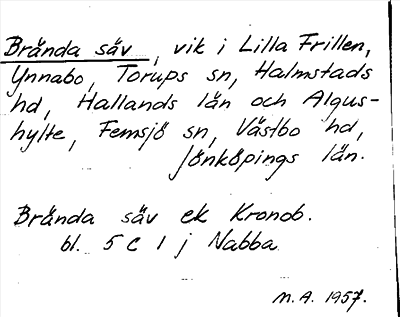 Brända säv, vik i Lilla Frillen,
Ynnabo, Torups sn, Halmstads
hd, Hallands län och Algus-
hylte, Femsjö sn, Västbo hd,
Jönköpings län.
Brända säv ek Kronob.
bl. 5 C 1 j Nabba
M.A. 1957.